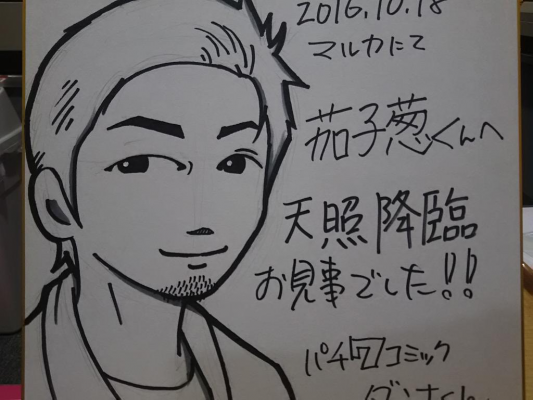 2016.10.18
マルカにて
茄子葱くんへ
天照降臨
お見事でした!!
パチ7コミック